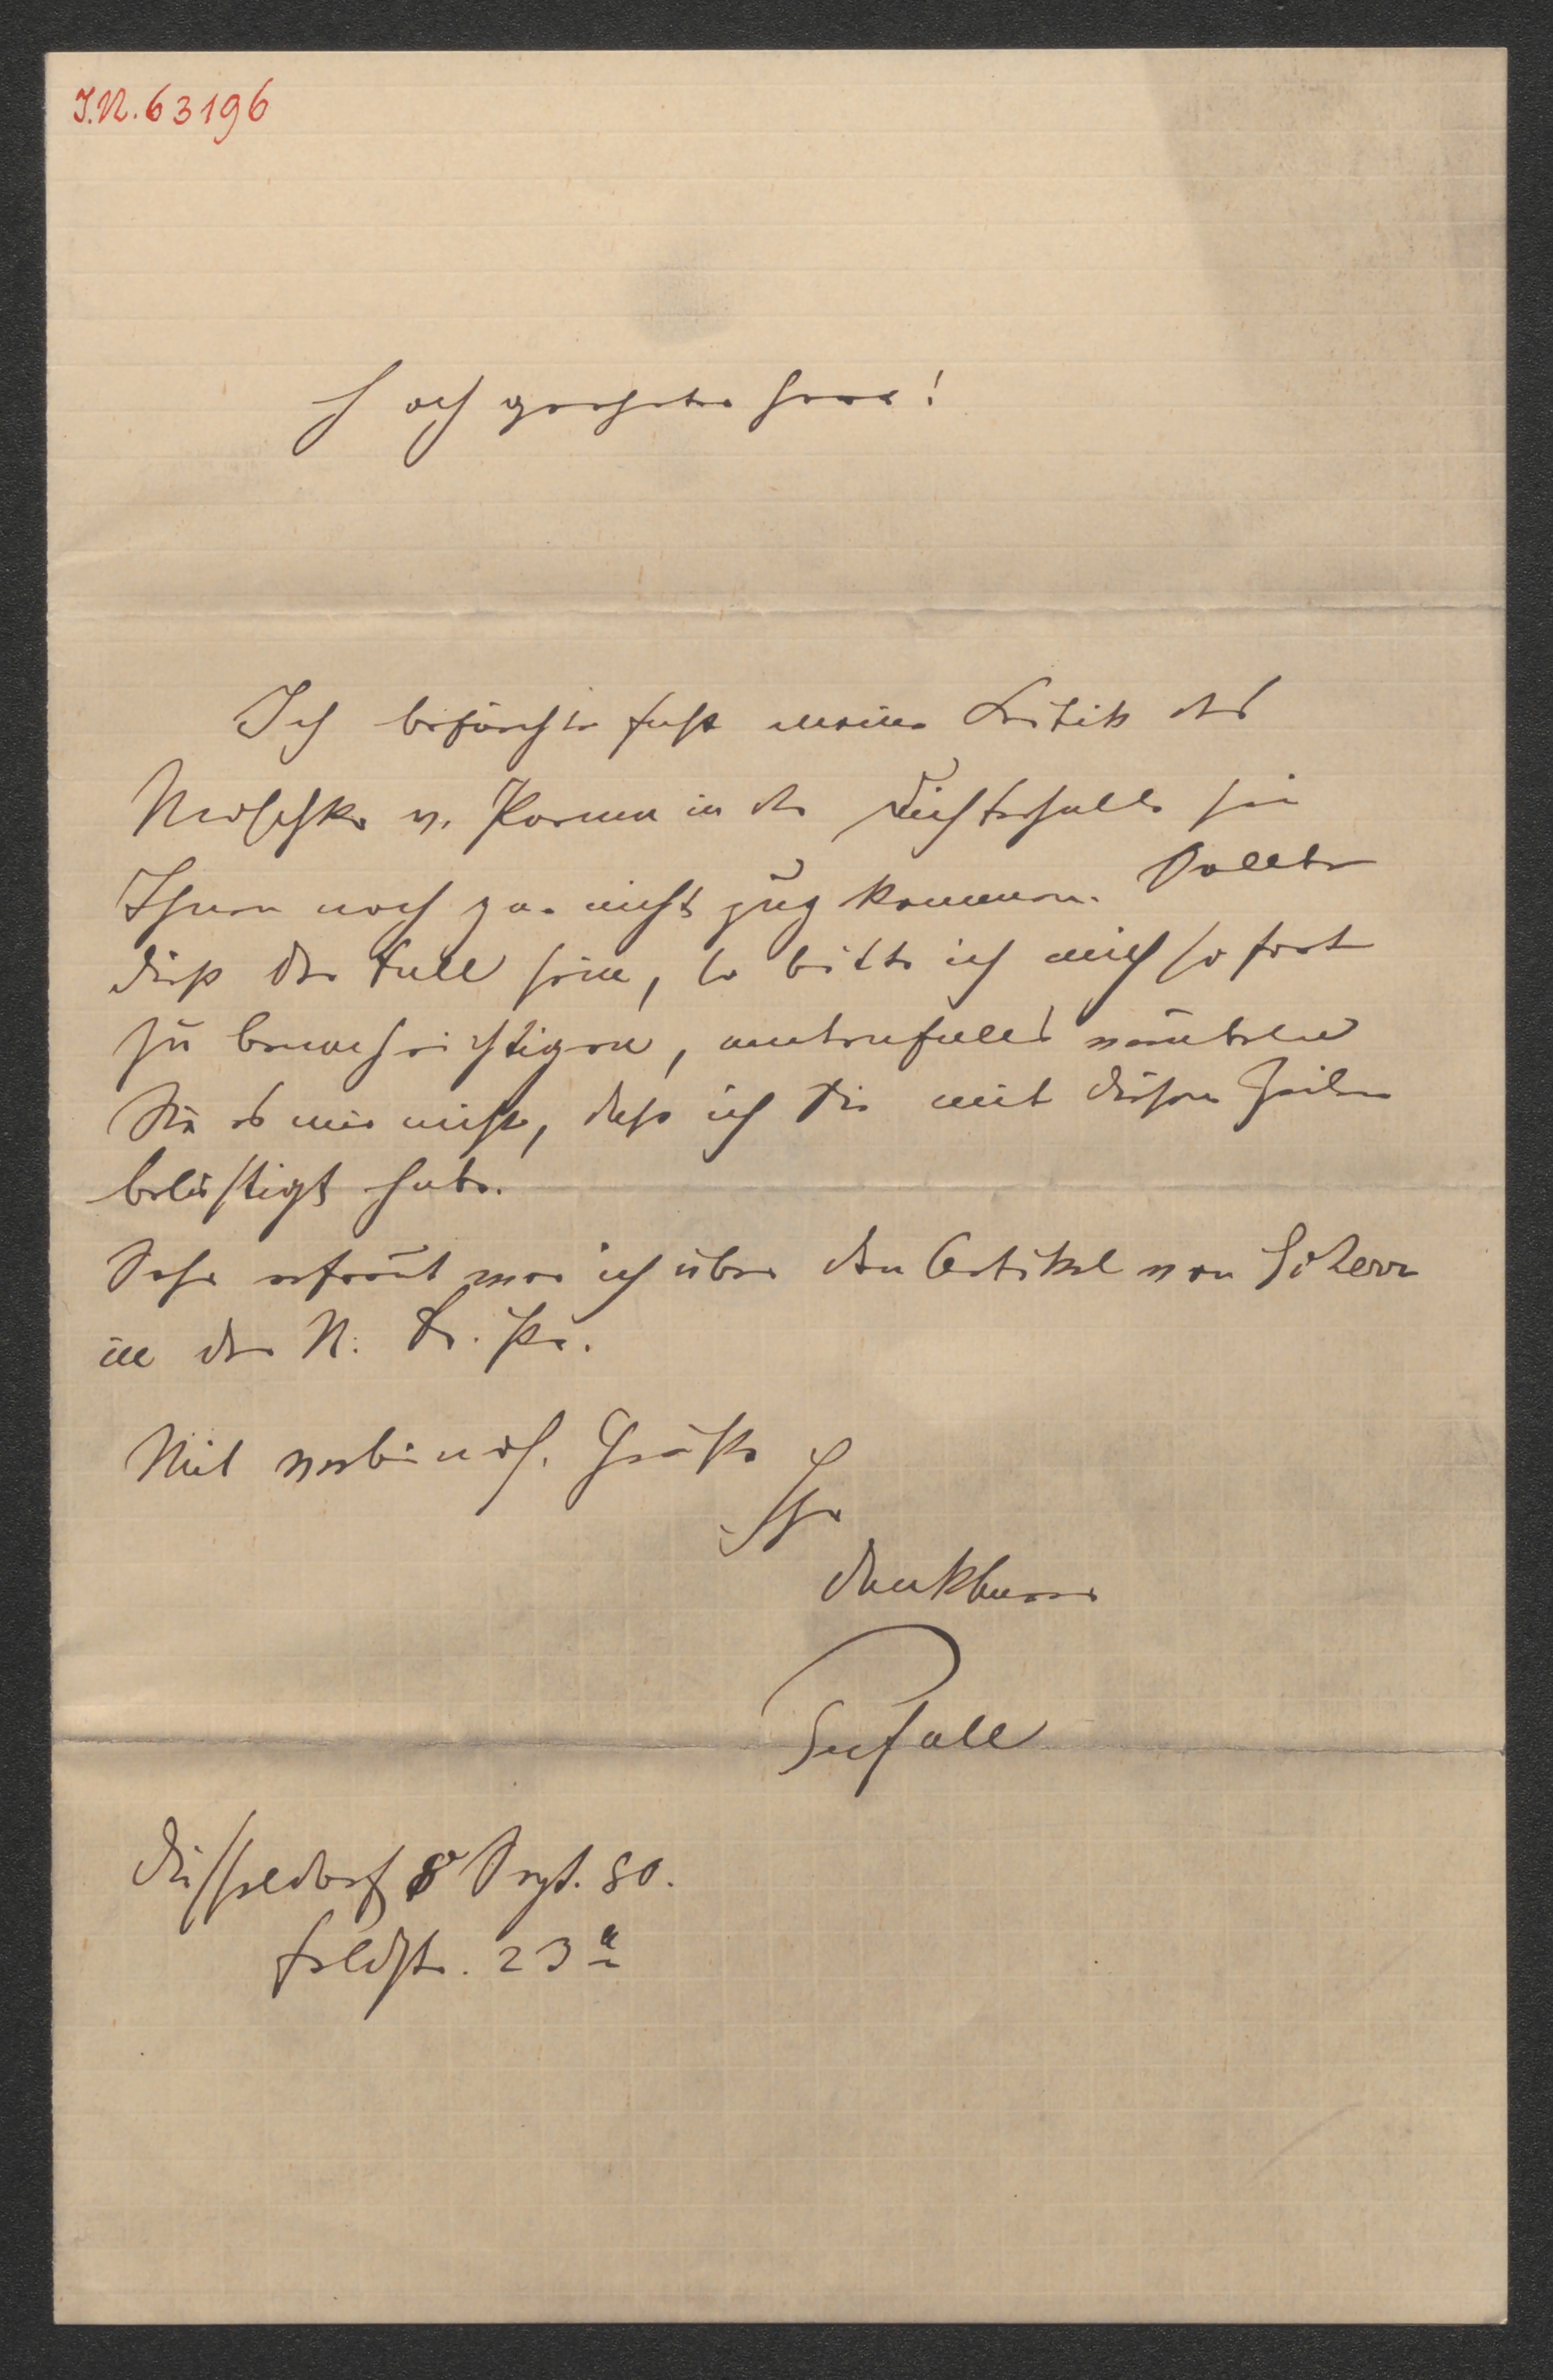 I.N. 63196
Hoch geehrter Herr!
Ich befürchte fast meine Kritik des
Moschko v. Parma in der Dichterhalle sei
Ihnen noch gar nicht zug kommen. Sollte
dieß der Fall sein, so bitte ich mich sofort
zu benachrichtigen, anderenfalls verübeln
Sie es mir nicht, daß ich Sie mit diesen Zeilen
belästigt habe.
Sehr erfreut war ich über den Artikel von Scherr
in der N. Fr. Pr.
Mit verbindl. Grüße
Ihr
dankbarer
Düsseldorf 8 Sept. 80.
Feldstr. 23a